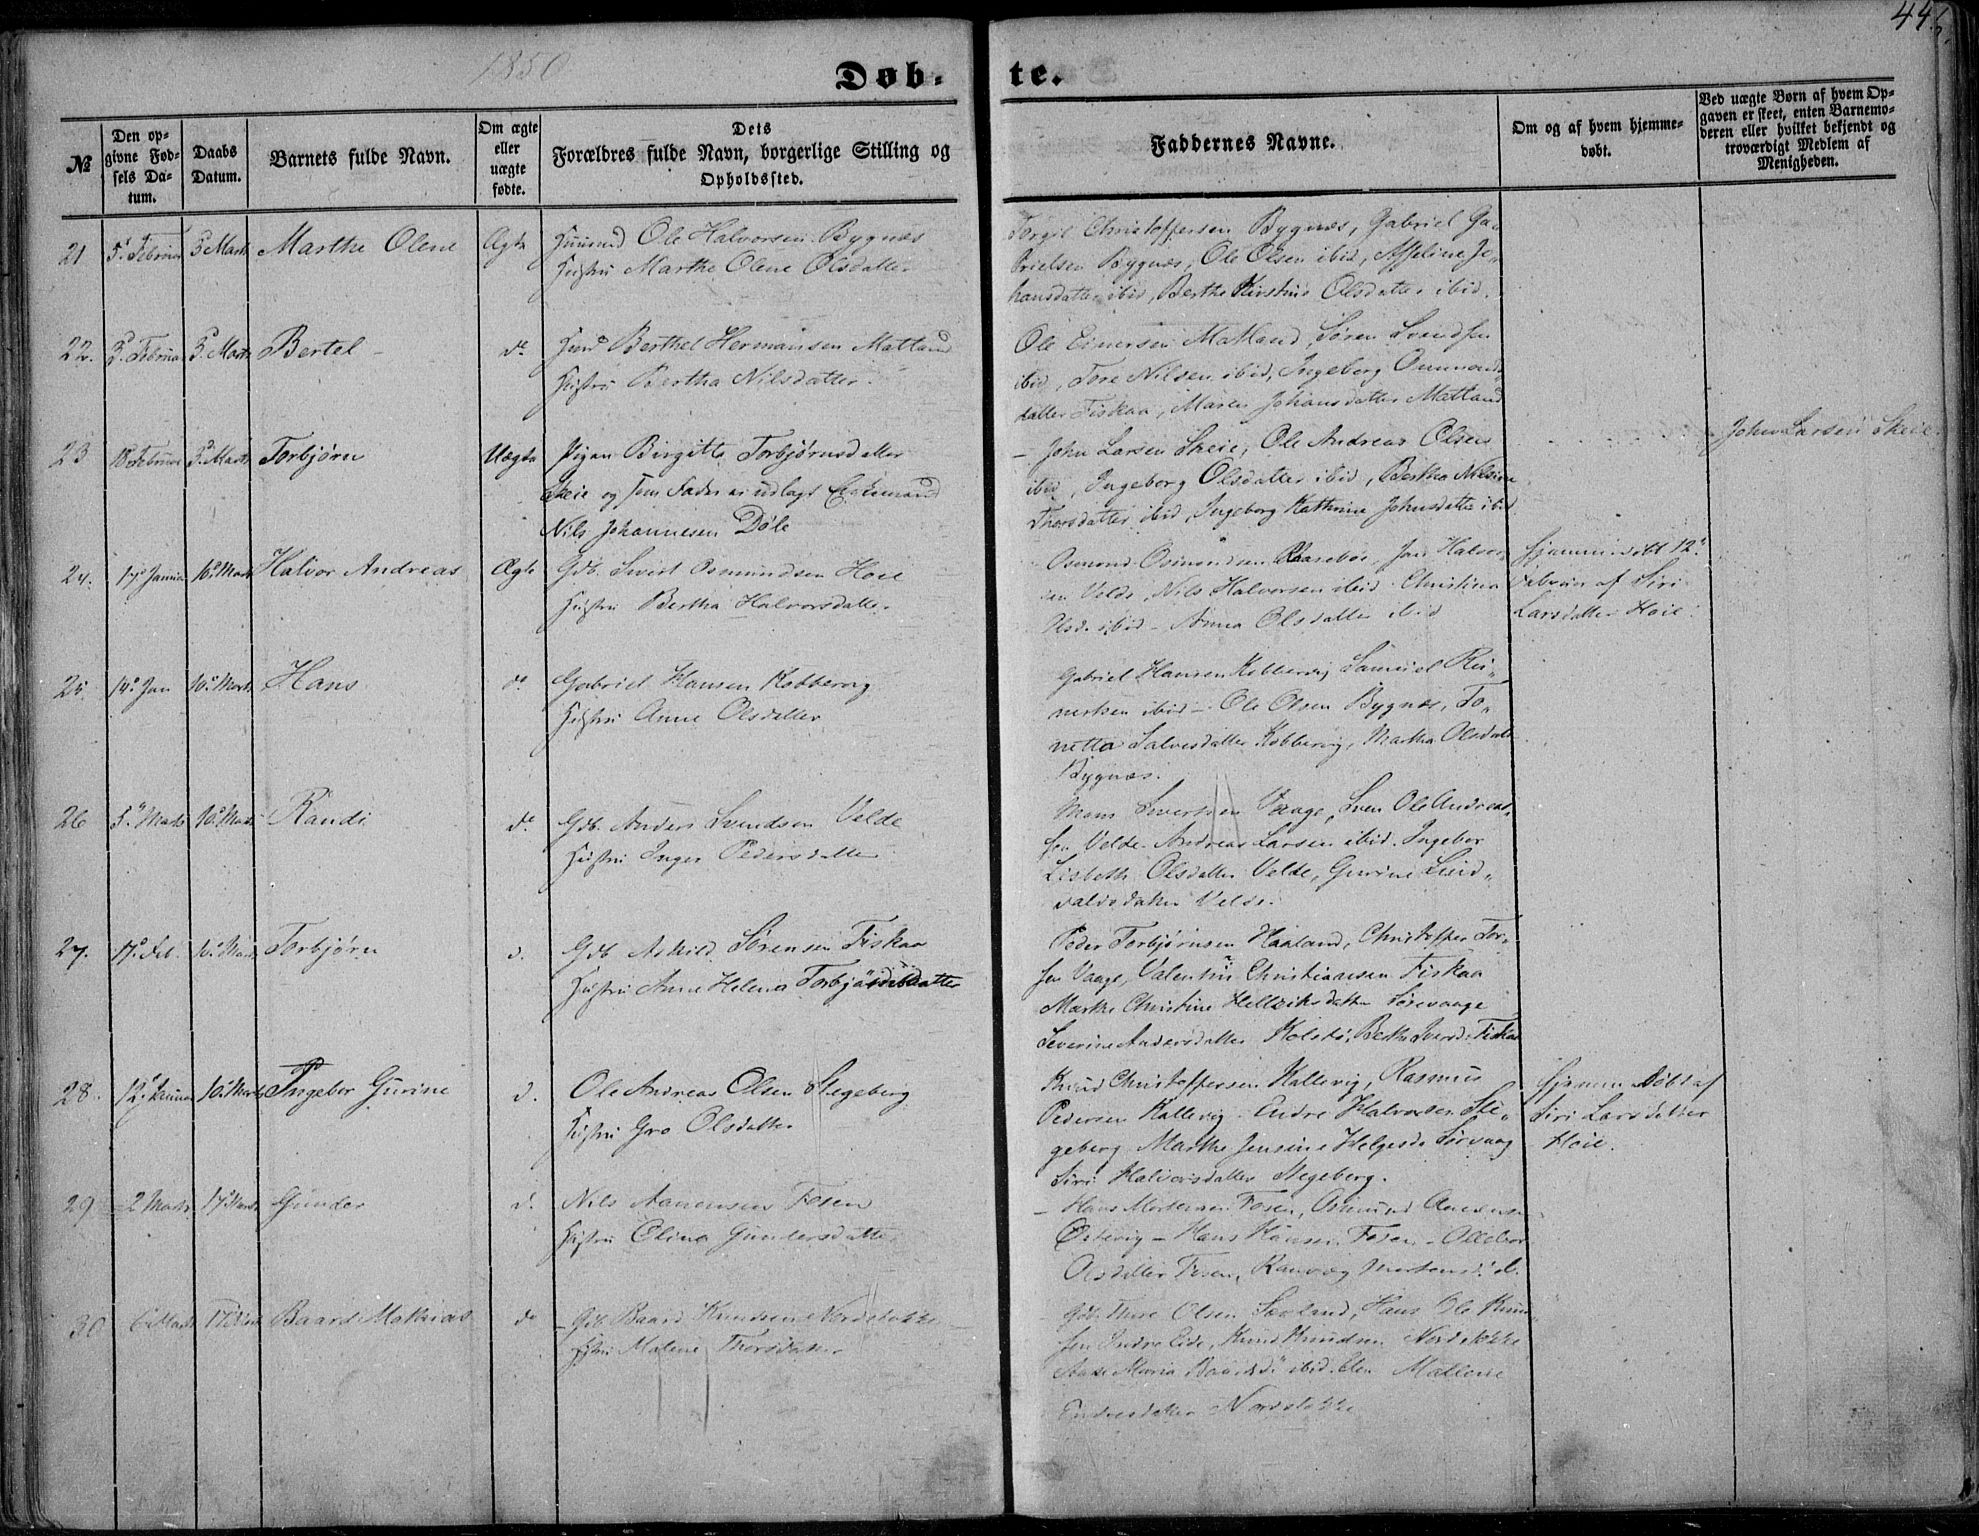 1850
446.
Døb-te.
№
Den opgivne Fødsels Datum.
Daabs Datum.
Barnets fulde Navn.
Om ægte eller uægte fødte.
Dets Forældres fulde Navn, borgerlige Stilling og Opholdssted.
Faddernes Navne.
Om og af hvem hjemmedøbt.
Ved uægte Børn af hvem Opgaven er skeet, enten Barnemoderen eller hvilket bekjendt og troværdigt Medlem af Menigheden.
21 5. Februar 3 Marts Marthe Olene Ægte Ole Halvorsen Bygnæs
Hustru Marthe Olene Olsdatter
Torgil Christoffersen Bygnæs, Gabriel Ga-
brielsen Bygnæs, Ole Olsen ibid, Asseline Jo-
hansdatter ibid, Berthe Kirstine Olsdatter ibid.
22. 3. Februar 3. Marts Bertel do Berthel Hermansen Matland
Hustru Bertha Nilsdatter.
Ole Einersen Matland, Søren Svendsen
ibid, Tore Nilsen ibid, Ingeborg Ommunds-
datter Fiskaa, Johansdatter Matland
23 18 Februar 3. Marts Torbjørn Uægte Pigen Birgitte Torbjørnsdatter
Skeie og som Fader er udlagt Enkemand
Nils Johannesen Døle
- John Larsen Skeie, Ole Andreas Olsen
ibid, Ingeborg Olsdatter ibid, Bertha
Thorsdatter ibid, Ingeborg Kathrine Johnsdatter ibid
John Larsen Skeie.
24. 17 Januar 10. Marts Halvor Andreas Ægte Gdb. Sivert Osmundsen Hoie
Hustru Bertha Halvorsdatter.
Osmond Osmondsen Jan Halvor-
sen Velde, Nils Halvorsen ibid Christine
Olsd. ibid - Anna Olsdatter ibid
Hjemmedøbt 12.
af Siri
Larsdatter Hoie.
25 14. Jan 10. Marts Hans do Gabriel Hansen Kobbervig
Hustru Anne Olsdatter
Gabriel Hansen Kobbervig Samuel Rei-
nertsen ibid - Ole Olsen Bygnæs, To-
netta Salvesdatter Kobbervig, Martha Olsdatt
Bygnæs.
26 5. Marts 10. Marts Randi do Gdb. Anders Svendsen Velde
Hustru Inger Pedersdatter
Mons Sivertsen Vaage, Sven Ole Andreas-
sen Velde Andreas Larsen ibid. Ingebor
Lisbeth Olsdatter Velde, Gurine
datter Velde.
27. 17. Feb. 10. Marts Torbjørn d. Gdb Askild Sørensen Fiskaa
Hustru Anne Helena Torbjörnsdatter
Peder Torbjørnsen Haaland, Christoffer Tor-
sen Vaage, Valentin Christiansen Fiskaa
Marthe Christine Sørevaage
Severine Andersdatter Kolstø, Berthe Fiskaa
28. 12. 10. Marts Ingebor Gurine d. Ole Andreas Olsen Stegeberg
Hustru Gro Olsdatter
Knud Christoffersen Kallevig, Rasmus
Pedersen Kallevig. Endre Halvorsen Ste-
geberg Marthe Jensine Helgesd. Sørvaag
Siri Halvorsdatter Stegeberg.
Hjemmedøbt af
Siri Larsdatter
Hoie.
29 2 Marts 17 Marts Gunder d. Nils Aanensen Fosen
Hustru Eline Gundersdatter
- Hans Mortensen Fosen, Osmund Aanensen
Østevig - Hans Hansen Fosen -
Olsdatter Fosen, Ranveg
30 6 Marts 17 Baard Mathias do Gdb. Baard Knudsen Nordstokke
Hustru Malene Thorsdatter
Gdb. Thore Olsen Hans Ole Knud-
sen Indre Eide, Knud Knudsen Nordstokke
Maria Baardsd. ibid. Mallene
Endresdatter Nordstokke